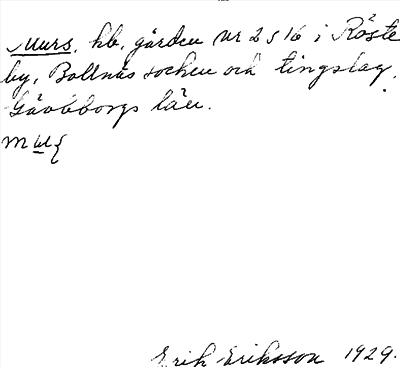 Murs. hb. gården Nr 2 s 16 i Röste
by, Bollnäs socken och tingslag,
Gävleborgs län.
Erik Eriksson 1929.